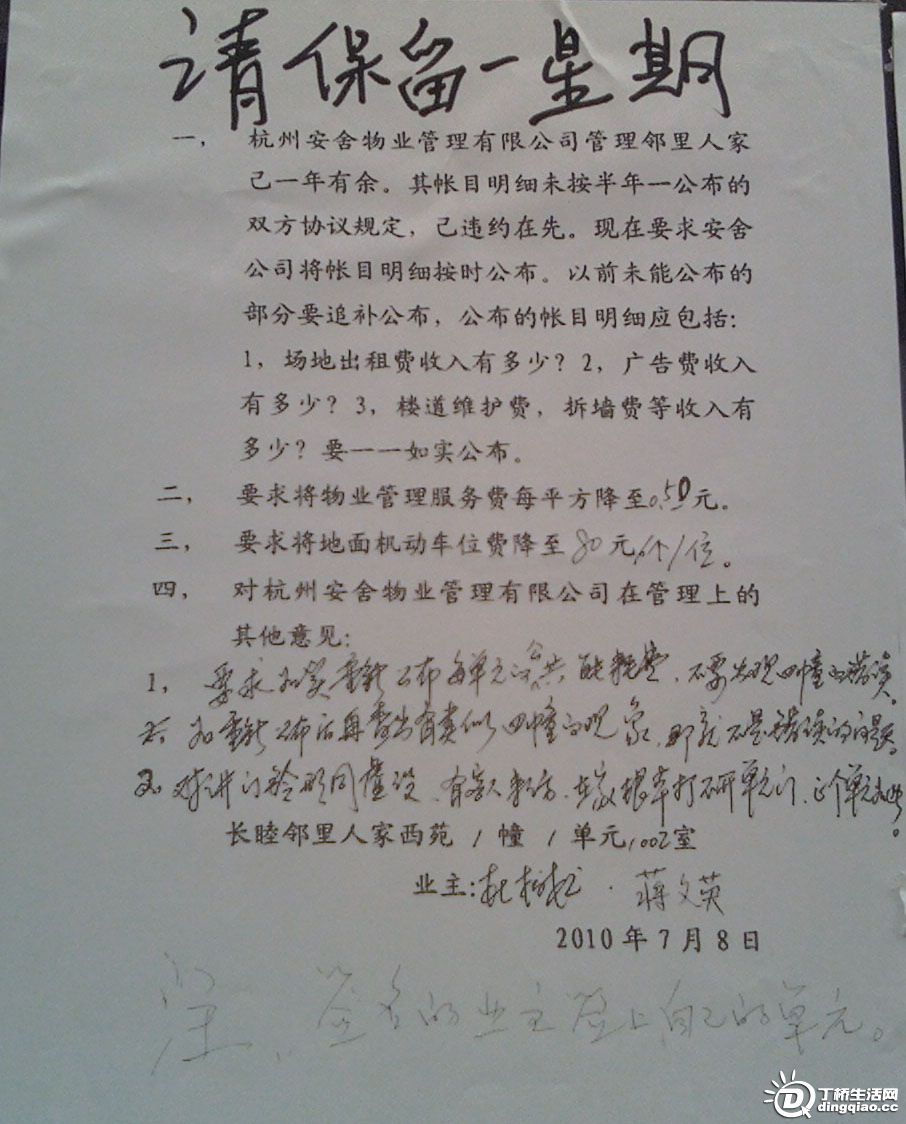 请保留一星期
一， 杭州安舍物业管理有限公司管理邻里人家
己一年有余。其帐目明细未按半年一公布的
双方协议规定，己违约在先。现在要求安舍
公司将帐目明细按时公布。以前未能公布的
部分要追补公布，公布的帐目明细应包括：
1，场地出租费收入有多少？2，广告费收入
有多少？3，楼道维护费，拆墙费等收入有
多少？要一一如实公布。
二， 要求将物业管理服务费每平方降至0.50元。
三， 要求将地面机动车位费降至80元/个/位。
四， 对杭州安舍物业管理有限公司在管理上的
其他意见：
1，要求 重新公布每单元公共能耗费，不要出现四幢的错误。
重新公布后再查出有类似四幢的现象，那就不是错误的问题。
对讲门铃形同虚设，有客人来访，在家根本打不开单元门，
长睦邻里人家西苑 1 幢 1 单元1002室
业主： 蒋文英
2010年7月8日
签名的业主签上自己的单元。
丁桥生活网
dingqiao.cc